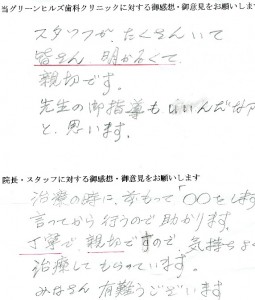 当グリーンヒルズ歯科クリニックに対する御感想・御意見をお願いしま
スタッフが、たくさんいて
皆さん 明かるくて、
親切です。
先生の御指導もいいんだなア
と、思います。
院長・スタッフに対する御感想・御意見をお願いします
治療の時に、前もって「〇〇をします
言ってから行うので助かります。
丁寧で、親切ですので、気持ちよ
治療してもらっています。
みなさん 有難うございます